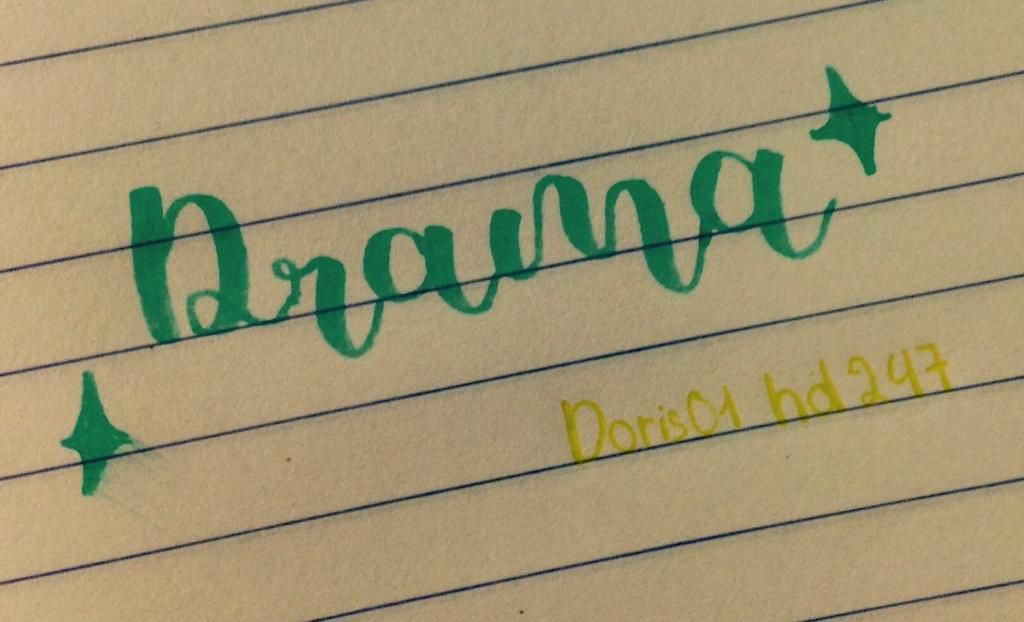 Drama
Doris01 hd247